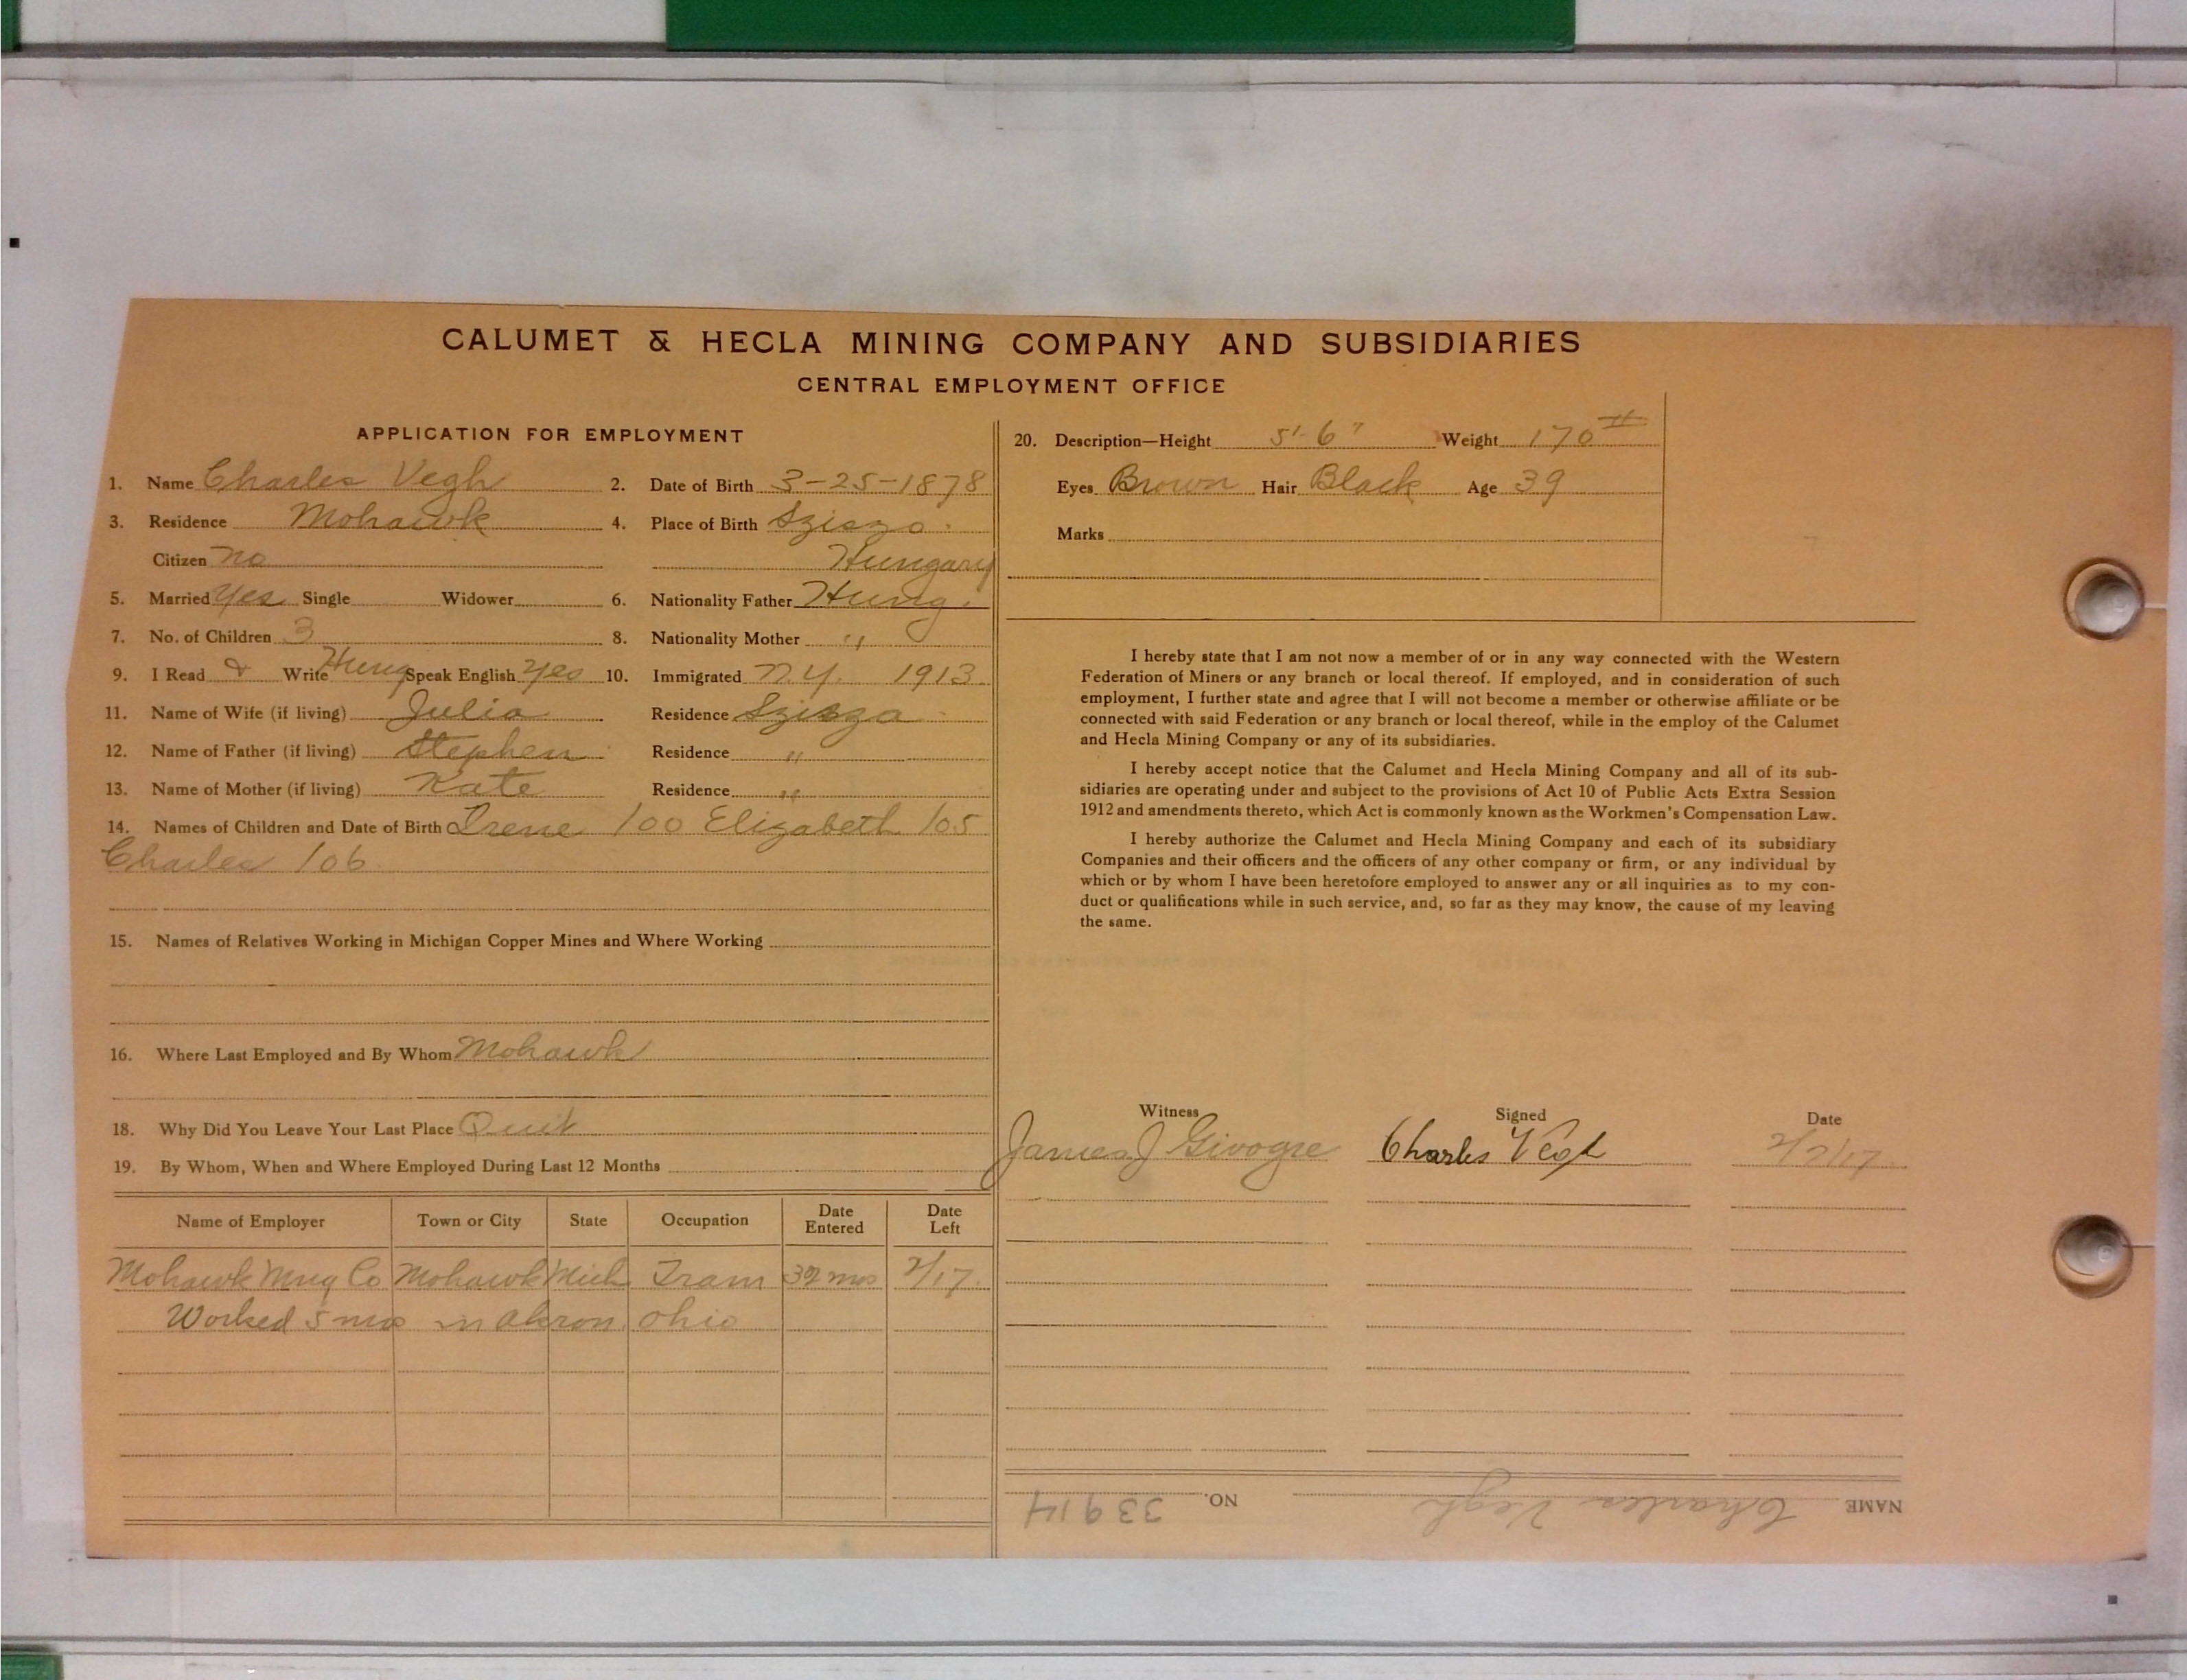 CALUMET & HECLA MINING COMPANY AND SUBSIDIARIES
CENTRAL EMPLOYMENT OFFICE
APPLICATION FOR EMPLOYMENT
1. Name Charles Vegh 2. Date of Birth 3-25-1878
3. Residence Mohawk 4. Place of Birth
Citizen no Hungary
5. Married Yes Single Widower 6. Nationality Father Hung.
7. No. of Children 3 8. Nationality Mother "
9. I Read & Write Hung Speak English yes 10. Immigrated N.Y. 1913
11. Name of Wife (if living) Julia Residence
12. Name of Father (if living) Stephen Residence "
13. Name of Mother (if living) Kate Residence "
14. Names of Children and Date of Birth Irene /00 Elizabeth /05
Charles /06
15. Names of Relatives Working in Michigan Copper Mines and Where Working
16. Where Last Employed and By Whom Mohawk
18. Why Did You Leave Your Last Place Quit
19. By Whom, When and Where Employed During Last 12 Months
Name of Employer Town or City State Occupation Date Entered Date Left
Mohawk Mng Co Mohawk Mich Tram mos 2/17
Worked 5 mos in Akron Ohio
20. Description—Height 5'-6" Weight 170#
Eyes Brown Hair Black Age 39
Marks
I hereby state that I am not now a member of or in any way connected with the Western
Federation of Miners or any branch or local thereof. If employed, and in consideration of such
employment, I further state and agree that I will not become a member or otherwise affiliate or be
connected with said Federation or any branch or local thereof, while in the employ of the Calumet
and Hecla Mining Company or any of its subsidiaries.
I hereby accept notice that the Calumet and Hecla Mining Company and all of its sub-
sidiaries are operating under and subject to the provisions of Act 10 of Public Acts Extra Session
1912 and amendments thereto, which Act is commonly known as the Workmen's Compensation Law.
I hereby authorize the Calumet and Hecla Mining Company and each of its subsidiary
Companies and their officers and the officers of any other company or firm, or any individual by
which or by whom I have been heretofore employed to answer any or all inquiries as to my con-
duct or qualifications while in such service, and, so far as they may know, the cause of my leaving
the same.
Witness Signed Date
James J Charles Vegh
NAME Charles Vegh NO. 33914